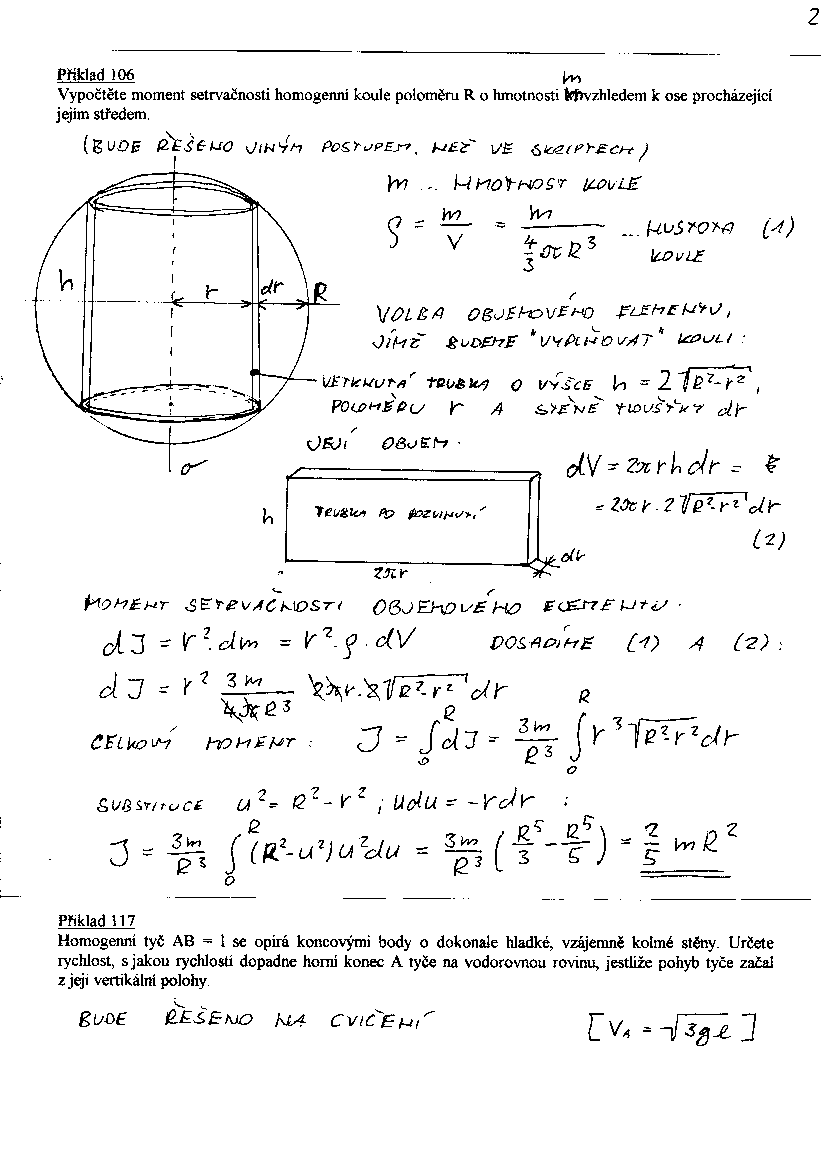 2
Příklad 106
m
Vypočtěte moment setrvačnosti homogenní koule poloměru R o hmotnosti vzhledem k ose procházející
jejím středem.
(BUDE ŘEŠENO JINÝM POSTUPEM, NEŽ VE SKRIPTECH)
m ... HMOTNOST KOULE
ρ = m/V = m/(4/3 π R³) ... HUSTOTA KOULE (1)
h r dr R
VOLBA OBJEMOVÉHO ELEMENTU,
JÍMŽ BUDEME "VYPLŇOVAT" KOULI:
VETKNUTÁ TRUBKA O VÝŠCE h = 2√(R²-r²),
POLOMĚRU r A STĚNĚ TLOUŠŤKY dr
JEJÍ OBJEM:
o
dV = 2πrh dr =
h TRUBKA PO ROZVINUTÍ
= 2πr.2√(R²-r²) dr
(2)
dr
2πr
MOMENT SETRVAČNOSTI OBJEMOVÉHO ELEMENTU:
dJ = r².dm = r².ρ.dV DOSADÍME (1) A (2):
dJ = r² 3m/(4πR³) 2πr.2√(R²-r²) dr
CELKOVÝ MOMENT: J = ∫₀ᴿ dJ = 3m/R³ ∫₀ᴿ r³√(R²-r²) dr
SUBSTITUCE u² = R²-r² ; udu = -rdr :
J = 3m/R³ ∫₀ᴿ (R²-u²)u²du = 3m/R³ (R⁵/3 - R⁵/5) = 2/5 mR²
Příklad 117
Homogenní tyč AB = l se opírá koncovými body o dokonale hladké, vzájemně kolmé stěny. Určete
rychlost, s jakou rychlostí dopadne horní konec A tyče na vodorovnou rovinu, jestliže pohyb tyče začal
z její vertikální polohy.
BUDE ŘEŠENO NA CVIČENÍ [V_A = √(3gl)]